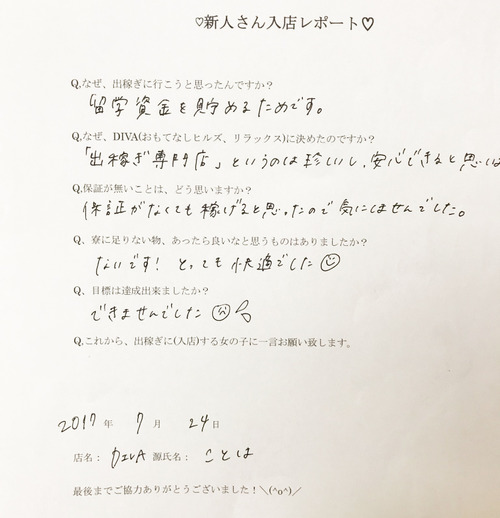 ♡新人さん入店レポート♡
Q,なぜ、出稼ぎに行こうと思ったんですか？
留学資金を貯めるためです。
Q,なぜ、DIVA(おもてなしヒルズ、リラックス)に決めたのですか？
「出稼ぎ専門店」というのは珍しいし、安心できると思い
Q,保証が無いことは、どう思いますか？
保証がなくても稼げると思ったので気にしませんでした。
Q、寮に足りない物、あったら良いなと思うものはありましたか？
ないです! とっても快適でした
Q、目標は達成出来ましたか？
できませんでした
Q,これから、出稼ぎに(入店)する女の子に一言お願い致します。
2017年 7月 24日
店名： DIVA 源氏名： ことは
最後までご協力ありがとうございました！＼(^o^)／